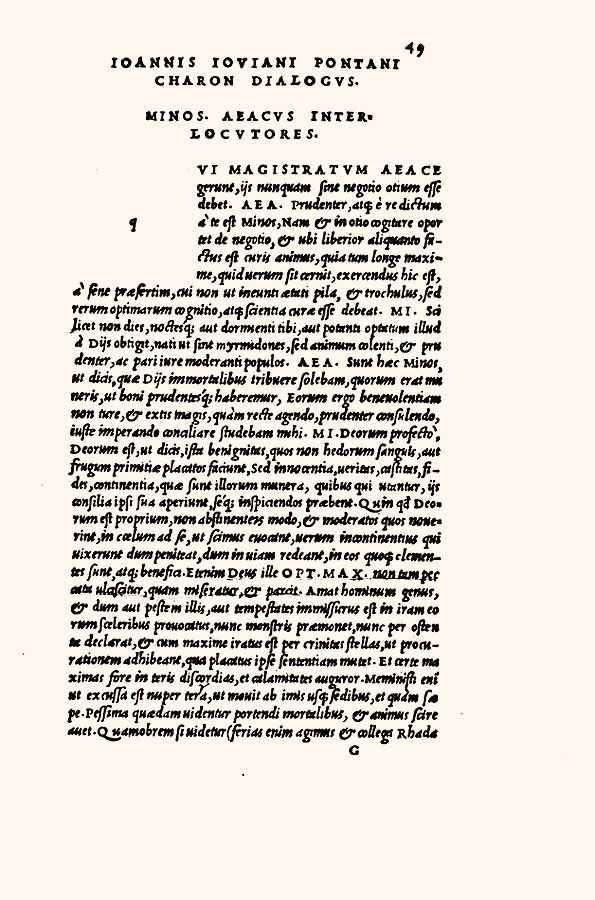 49
IOANNIS IOVIANI PONTANI
CHARON DIALOGVS.
MINOS. AEACVS INTER-
LOCVTORES.
q
VI MAGISTRATVM AEACE
gerunt, ijs nunquam sine negotio otium esse
debet. AEA. Prudenter, atq; è re dictum
à te est Minos, Nam & in otio cogitare opor
tet de negotio, & ubi liberior aliquanto fa-
ctus est curis animus, quia tum longe maxi-
me, quid uerum sit cernit, exercendus hic est,
à sene præsertim, cui non ut ineunti ætati pila, & trochulus, sed
rerum optimarum cognitio, atq; scientia curæ esse debeat. MI. Sci
licet non dies, noctesq; aut dormienti tibi, aut potanti optatum illud
à Dijs obtigit, nati ut sint myrmidones, sed animum colenti, & pru
denter, ac pari iure moderanti populos. AEA. Sunt hæc Minos,
ut dicis, quæ Dijs immortalibus tribuere solebam, quorum erat mu
neris, ut boni prudentesq; haberemur, Eorum ergo beneuolentiam
non ture, & extis magis, quàm recte agendo, prudenter consulendo,
iuste imperando conciliare studebam mihi. MI. Deorum profectò,
Deorum est, ut dicis, ista benignitas, quos non hedorum sanguis, aut
frugum primitiæ placatos faciunt, Sed innocentia, ueritas, castitas, fi-
des, continentia, quæ sunt illorum munera, quibus qui utantur, ijs
consilia ipsi sua aperiunt, seq; inspiciendos præbent. Quin qd Deo-
rum est proprium, non abstinenteis modo, & moderatos quos noue-
rint, in cœlum ad se, ut scimus euocant, uerum incontinentius qui
uixerunt dum peniteat, dum in uiam redeant, in eos quoq; clemen-
tes sunt, atq; benefici. Etenim Deus ille OPT. MAX. non tam pec
cata ulciscitur, quam miseratur, & parcit. Amat hominum genus,
& dum aut pestem illis, aut tempestates immissurus est in iram eo
rum sceleribus prouocatus, nunc monstris præmonet, nunc per osten
ta declarat, & cum maxime iratus est per crinitas stellas, ut procu-
rationem adhibeant, qua placatus ipse sententiam mutet. Et certe ma
ximas fore in teris discordias, et calamitates auguror. Meministi eni
ut excussa est nuper tera, ut mouit ab imis usq; sedibus, et quàm sæ
pe. Pessima quædam uidentur portendi mortalibus, & animus scire
auet. Quamobrem si uidetur (ferias enim agimus & collega Rhada
G